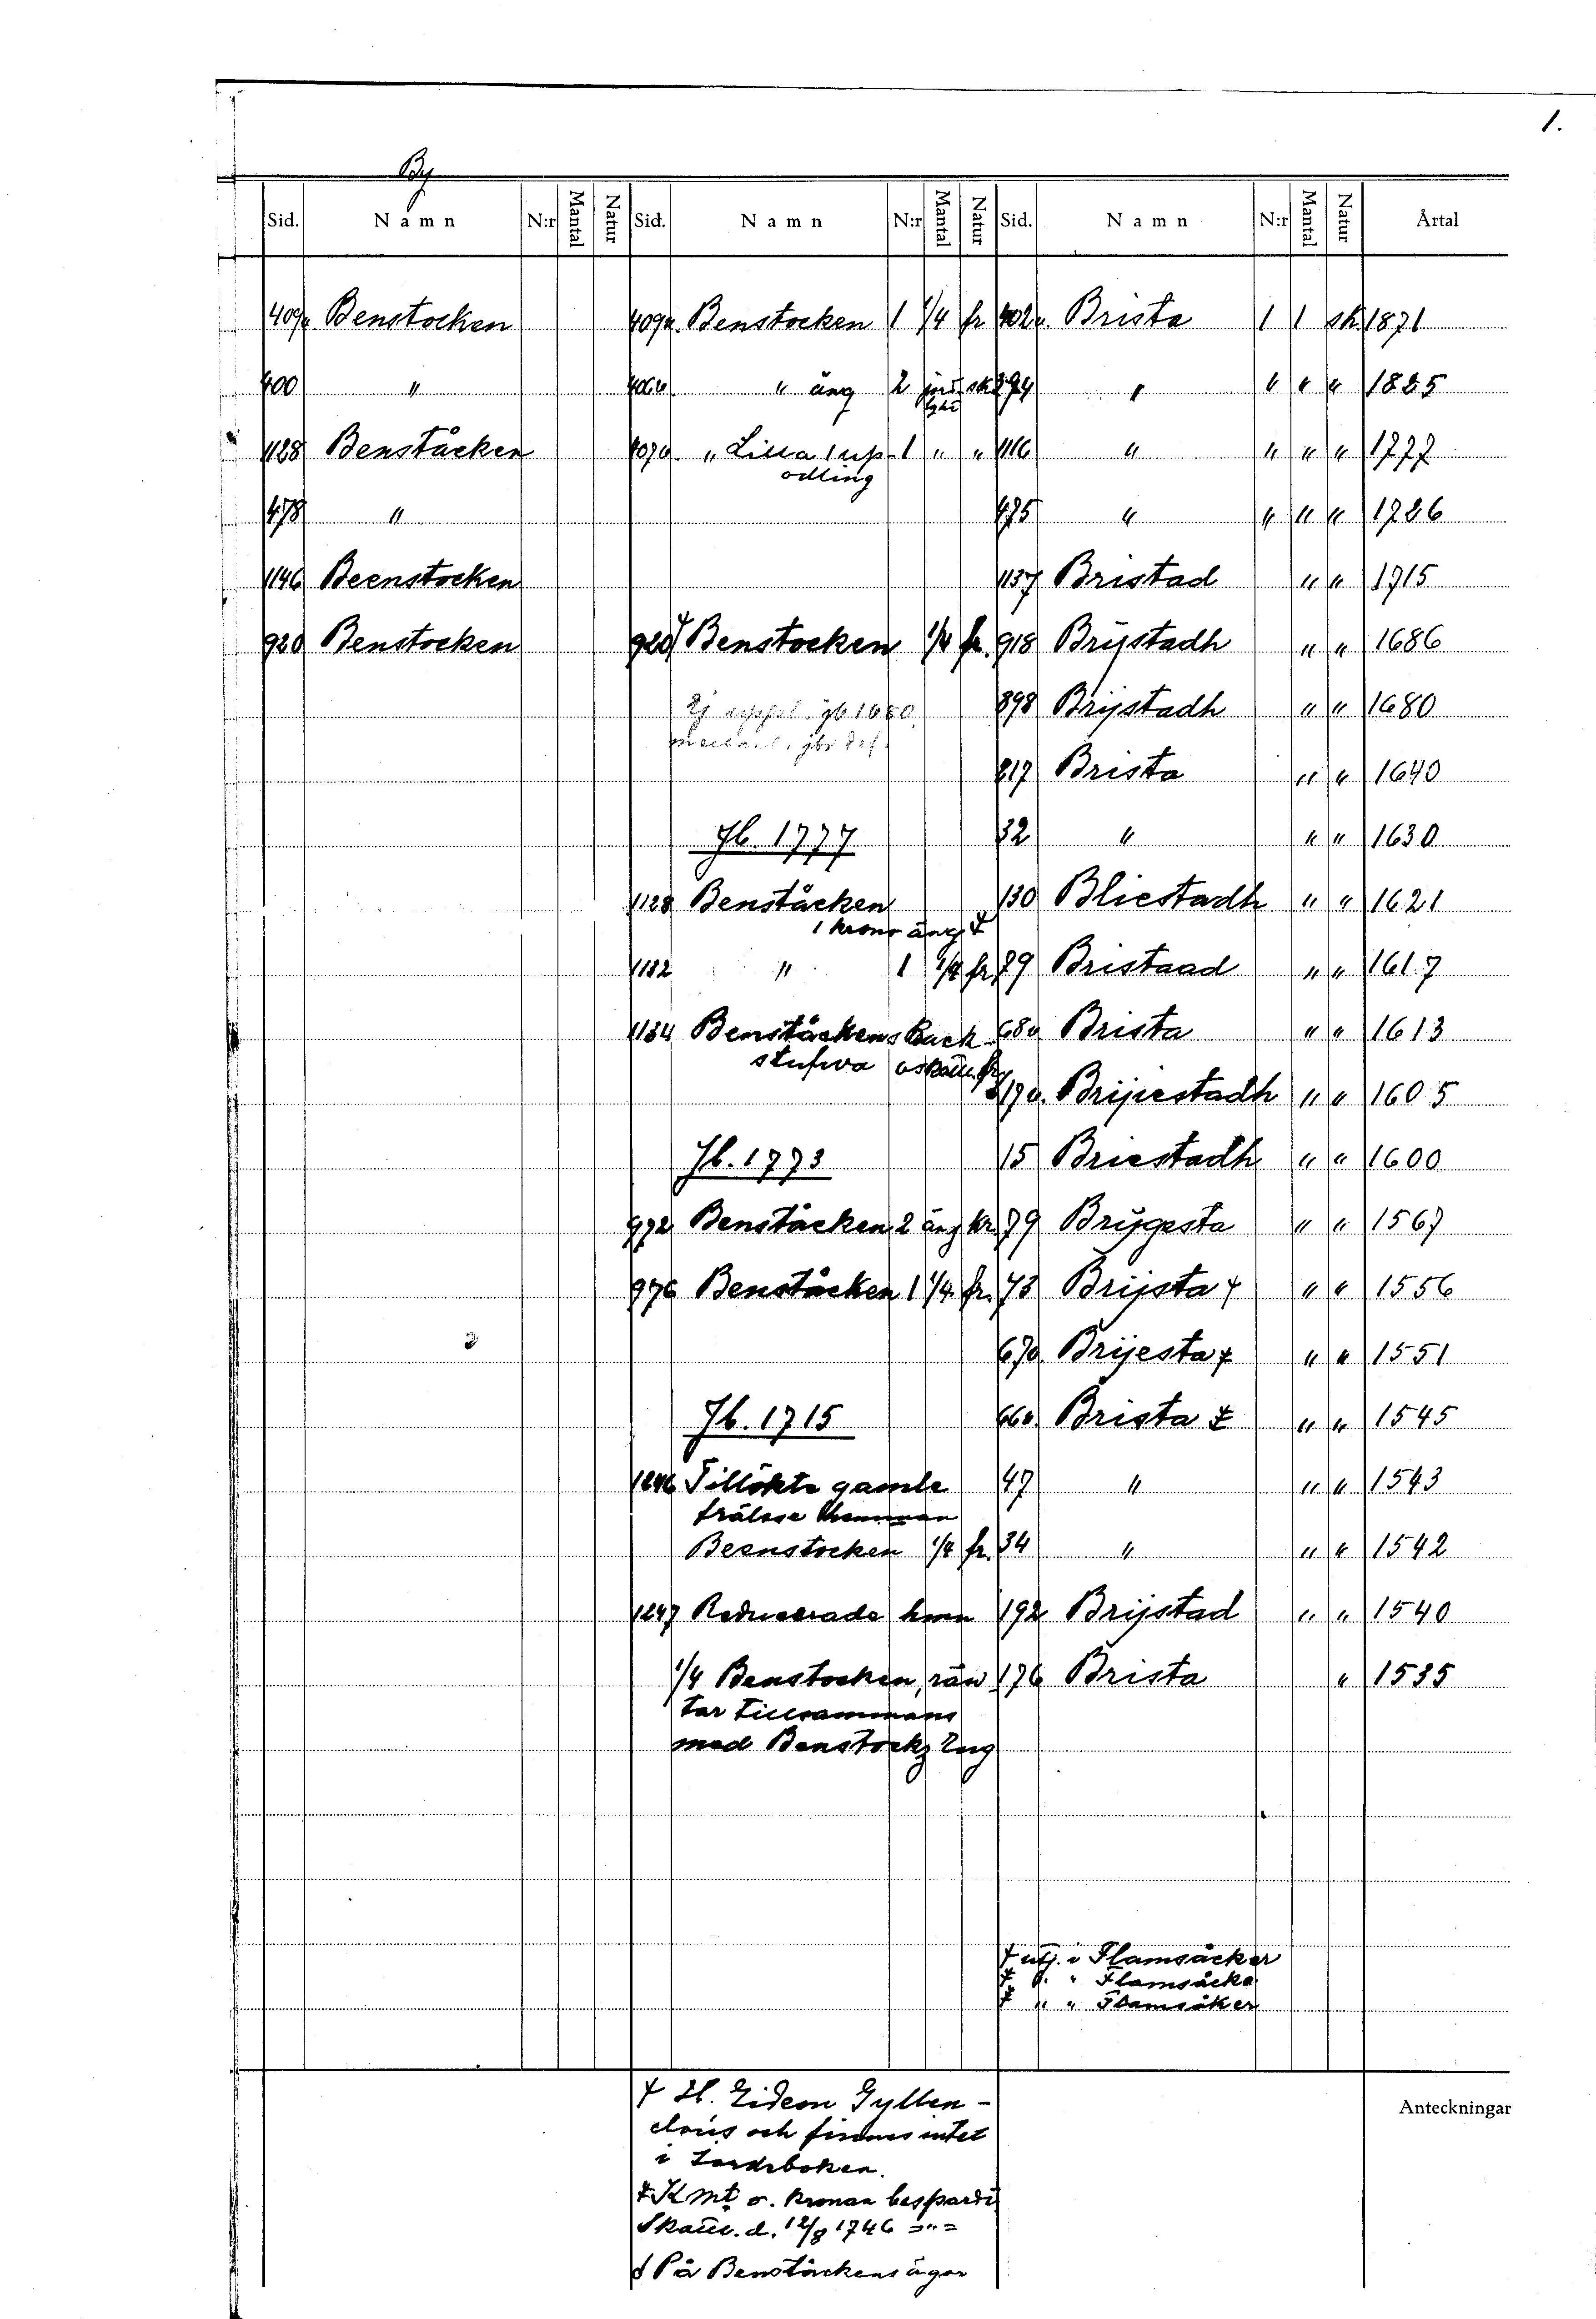 1.
By
Sid. Namn N:r Mantal Natur Sid. Namn N:r Mantal Natur Sid. Namn N:r Mantal Natur Årtal
409a Benstocken 409a. Benstocken 1 1/4 fr 402a. Brista 1 1 sk. 1871
400 " 406a " äng 2 jord- sk. 394 " " " " 1825
lght
1128 Benståcken 407a " Lilla 1 up- 1 " " 1116 " " " " 1777
odling
478 " 475 " " " " 1726
1146 Beenstocken 1137 Bristad " " 1715
920 Benstocken 920 Benstocken 1/4 fr. 918 Brijstadh " " 1686
898 Brijstadh " " 1680
817 Brista " " 1640
Jb. 1777 32 " " " 1630
1128 Benståcken 130 Bliestadh " " 1621
1 krono äng ‡
1132 " 1 1/4 fr 89 Bristaad " " 1617
1134 Benståckens Back- 68a Brista " " 1613
stufva
17a. Brijestadh " " 1605
Jb. 1773 15 Briestadh " " 1600
972 Benståcken 2 äng kr. 79 Brijgesta " " 1567
976 Benståcken 1 1/4 fr. 73 Brijsta † " " 1556
67a. Brijesta ‡ " " 1551
Jb. 1715 66a. Brista ‡ " " 1545
1246 Tillökte gamle 47 " " " 1543
frälsse hemman
Beenstocken 1/4 fr. 34 " " " 1542
1247 Reducerade hmn 192 Brijstad " " 1540
1/4 Benstocken, rän 176 Brista " 1535
tar tillsammans
med Benstockz Eng
† utj. i Flamsäcker
‡ " " Flamsäcke
‡ " " Flamsäker
† H. Eidem Gyllen-
cloris och finnes intet
i Jordeboken.
‡ K Mt o. Kronan besparde
Skatt. d. 12/8 1746 = " =
På Benståckens ägor
Anteckningar